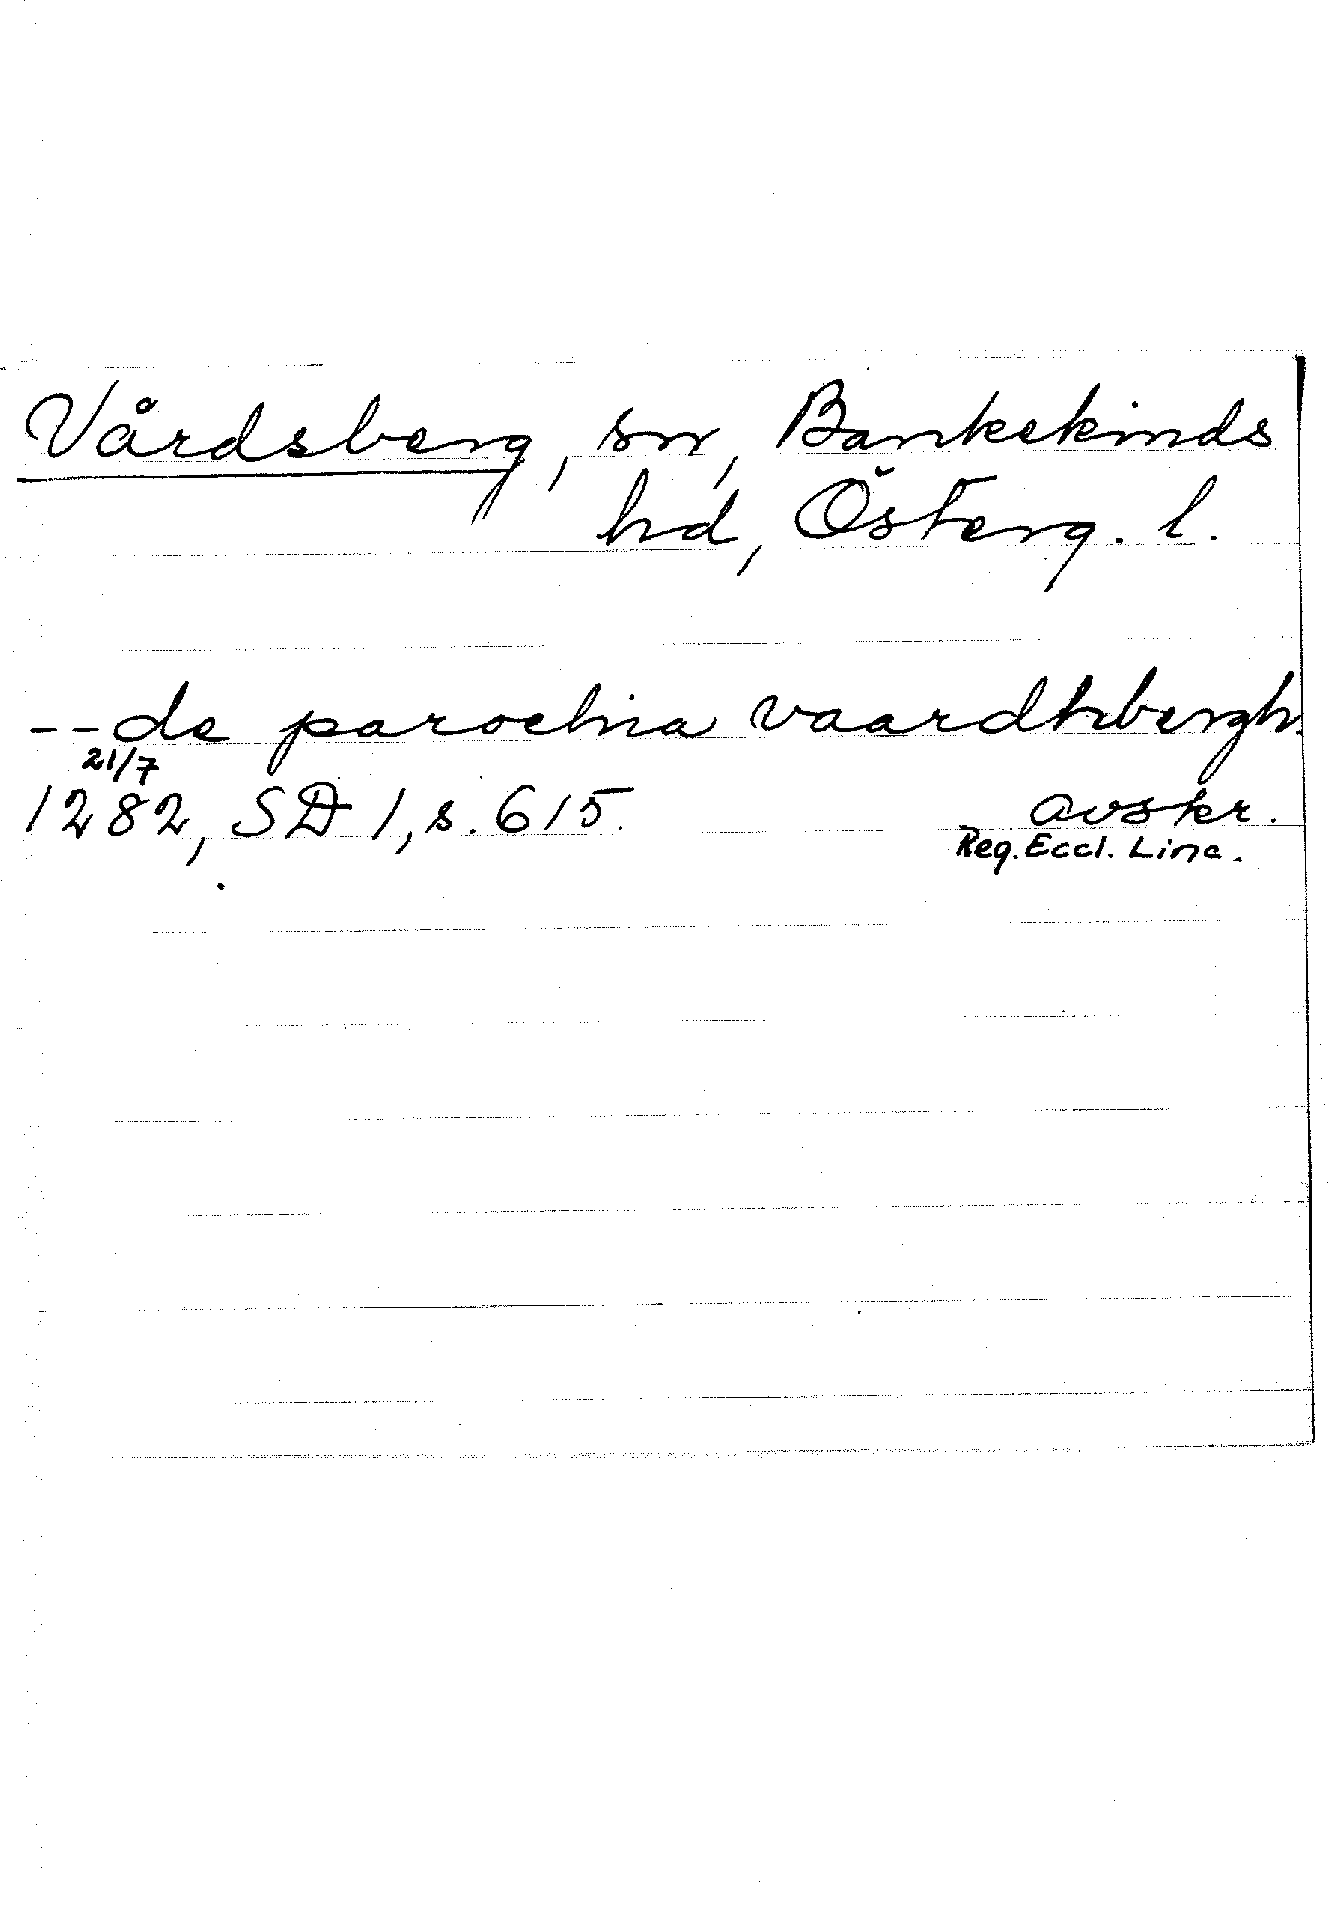 Vårdsberg, sn, Bankekinds
hd, Österg. l.
-- de parochia vaardhsbergh.
21/7
1282, SD 1, s. 615. avskr.
Reg. Eccl. Linc.